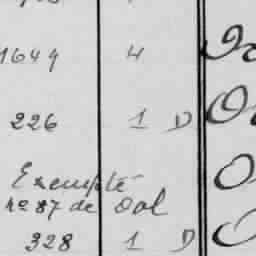 1644 4
226 1 D
Exempté
nº 87 de Dol
328 1 D